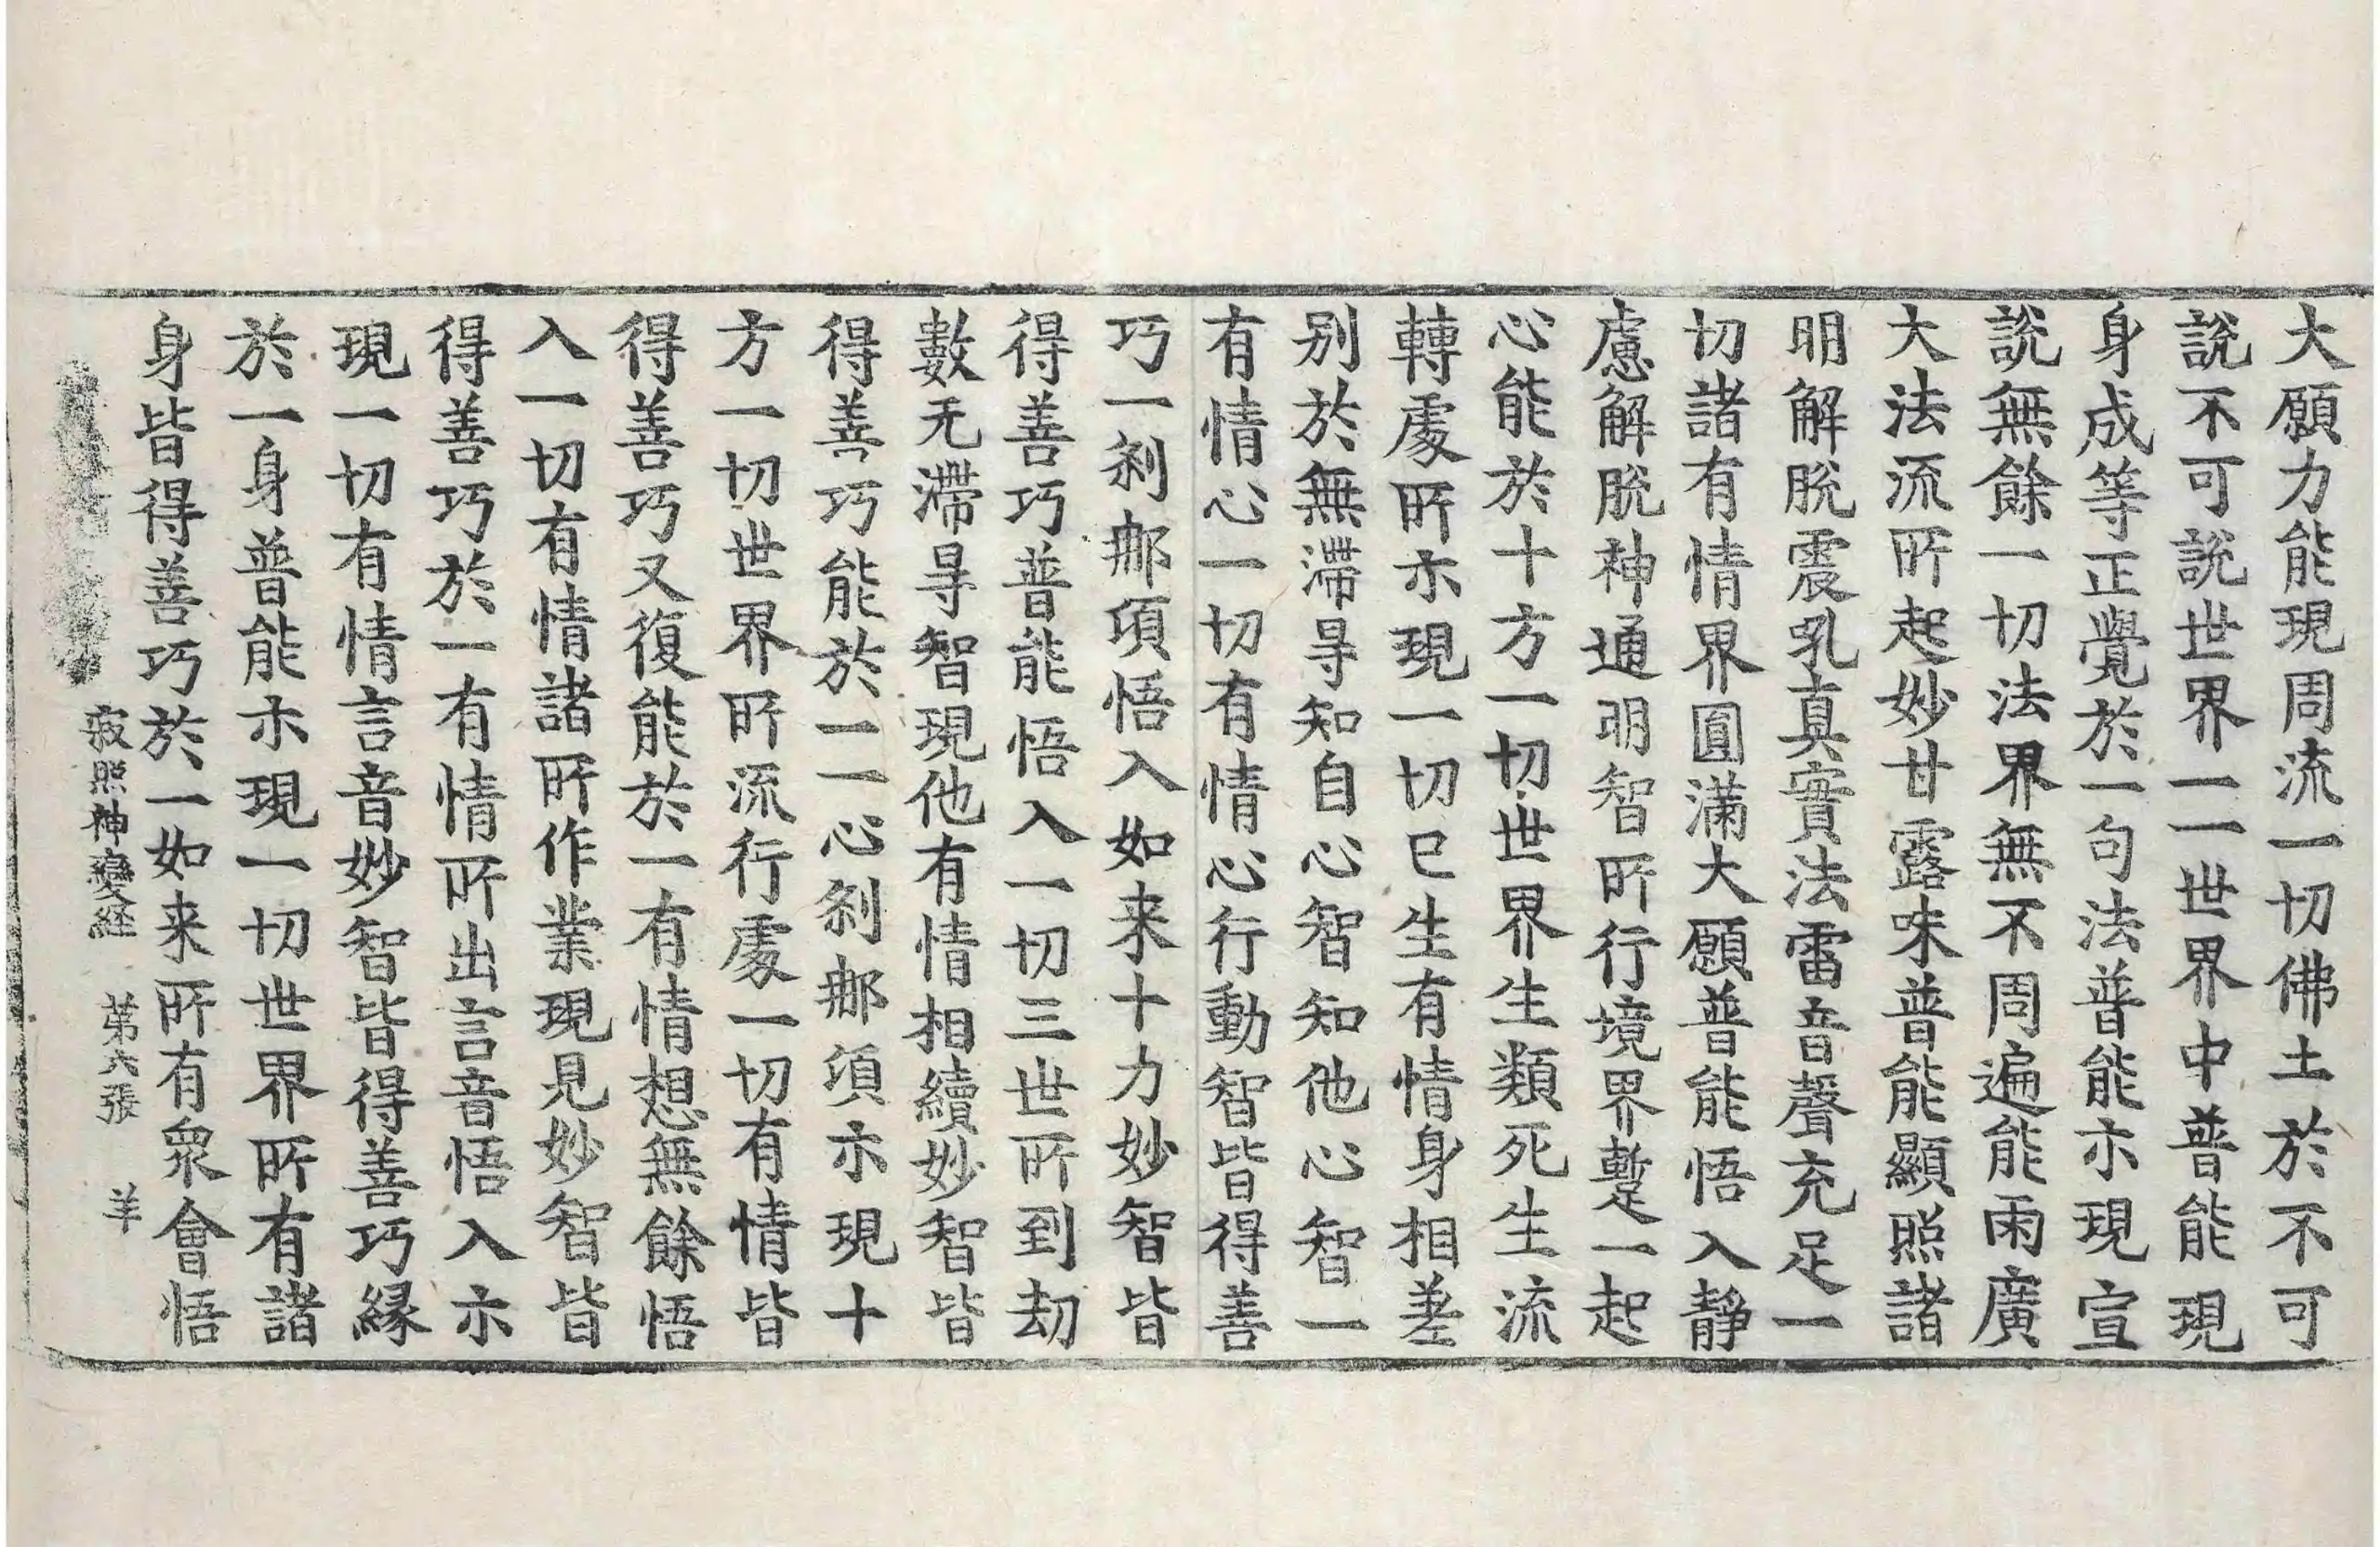 大願力能現周流一切佛土於不可
說不可說世界一一世界中普能現
身成等正覺於一句法普能示現宣
說無餘一切法界無不周遍能雨廣
大法流所起妙甘露味普能顯照諸
明解脫震吼真實法雷音聲充足一
切諸有情界圓滿大願普能悟入靜
慮解脫神通明智所行境界蹔一起
心能於十方一切世界生類死生流
轉處所示現一切已生有情身相差
別於無滯㝵知自心智知他心智一
有情心一切有情心行動智皆得善
巧一剎那頃悟入如来十力妙智皆
得善巧普能悟入一切三世所到劫
數无滯㝵智現他有情相續妙智皆
得善巧能於一一心剎那頃示現十
方一切世界所流行處一切有情皆
得善巧又復能於一有情想無餘悟
入一切有情諸所作業現見妙智皆
得善巧於一有情所出言音悟入示
現一切有情言音妙智皆得善巧緣
於一身普能示現一切世界所有諸
身皆得善巧於一如来所有眾會悟
寂照神變経　第六張　羊